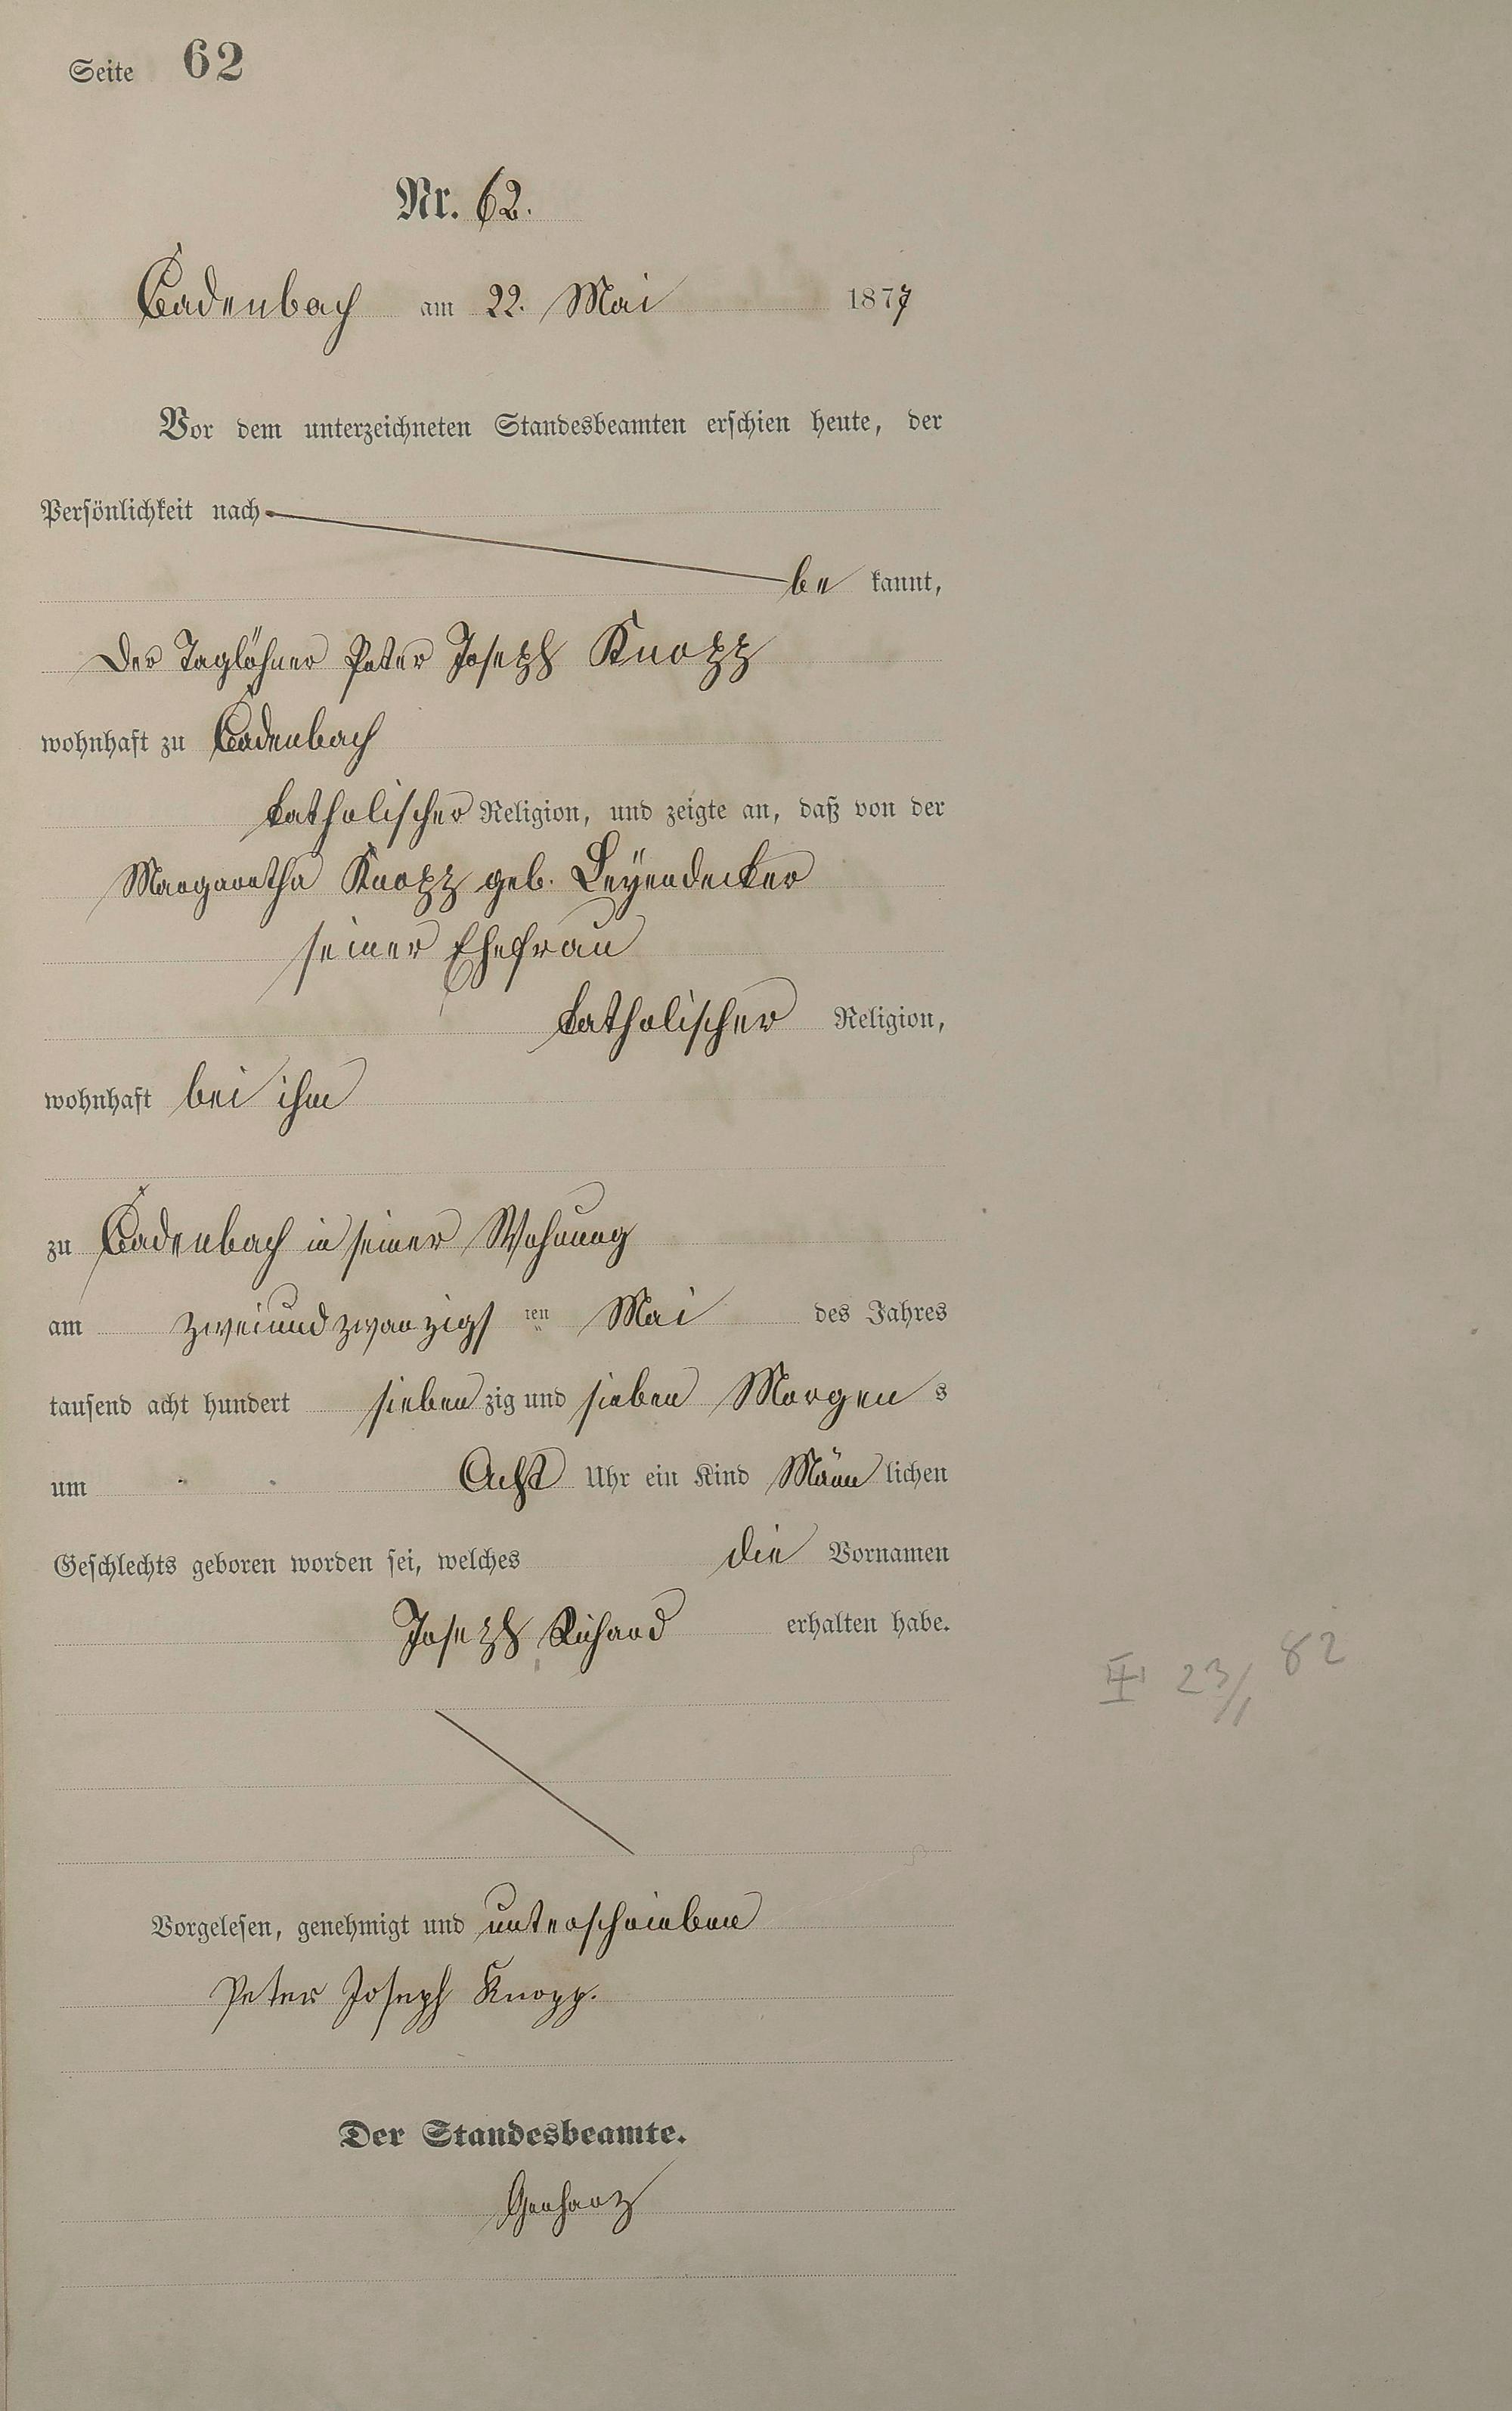 Seite 62
Nr. 62.
Cadenbach am 22. Mai 1877
Vor dem unterzeichneten Standesbeamten erschien heute, der
Persönlichkeit nach
be kannt,
Der Taglöhner Peter Joseph Knopp
wohnhaft zu Cadenbach
katholischer Religion, und zeigte an, daß von der
Margaretha Knopp geb. Leÿendecker
seiner Ehefrau
katholischer Religion,
wohnhaft bei ihm
zu Cadenbach in seiner Wohnung
am zweiundzwanzigs ten Mai des Jahres
tausend acht hundert sieben zig und sieben Morgen s
um Acht Uhr ein Kind Männ lichen
Geschlechts geboren worden sei, welches die Vornamen
Joseph Richard erhalten habe.
23/1 82
Vorgelesen, genehmigt und unterschrieben
Peter Joseph Knopp.
Der Standesbeamte.
Gerharz